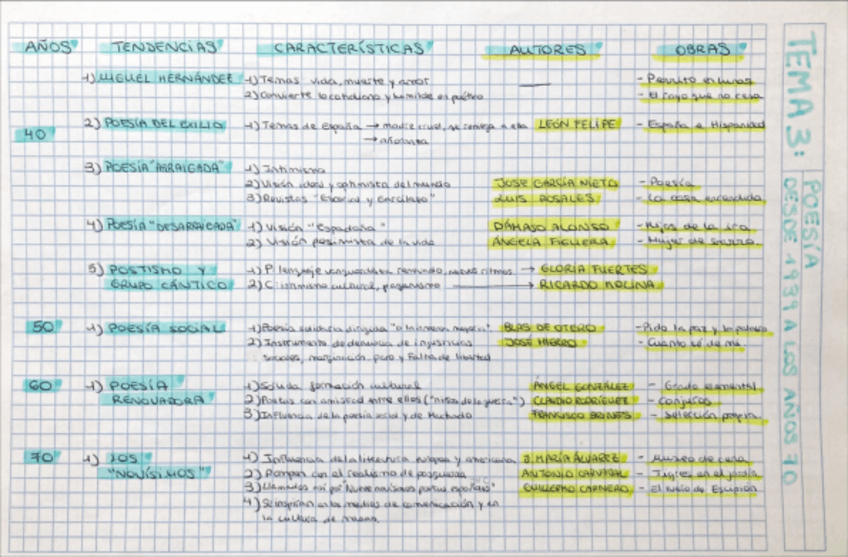 AÑOS TENDENCIAS CARACTERÍSTICAS AUTORES OBRAS
TEMA 3: POESÍA DESDE 1939 A LOS AÑOS 70
1) MIGUEL HERNÁNDEZ 1) Temas vida, muerte y amor - Perito en lunas
2) Convierte lo cotidiano y humilde en poético - El rayo que no cesa
40
2) POESÍA DEL EXILIO 1) Temas de España → madre cruel, se a ella LEÓN FELIPE - España e Hispanidad
→ añoranza
3) POESÍA "ARRAIGADA" 1) Intimismo
2) Visión ideal y optimista del mundo JOSE GARCÍA NIETO - Poesía
3) Revistas "Escorial y Garcilaso" LUIS ROSALES - La casa encendida
4) POESÍA "DESARRAIGADA" 1) Visión "Espadaña" DÁMASO ALONSO - Hijos de la ira
2) Visión pesimista de la vida ÁNGELA FIGUERA - Mujer de barro
5) POSTISMO Y 1) P lenguaje vanguardista renovado, nuevos ritmos → GLORIA FUERTES
GRUPO CÁNTICO 2) C intimismo cultural, paganismo → RICARDO MOLINA
50 1) POESÍA SOCIAL 1) Poesía solidaria dirigida "a la inmensa mayoría" BLAS DE OTERO - Pido la paz y la palabra
2) Instrumento de denuncia de injusticias JOSÉ HIERRO - Cuanto sé de mí
sociales, marginación, paro y falta de libertad
60 1) POESÍA 1) Sólida formación cultural ÁNGEL GONZÁLEZ - Grado elemental
RENOVADORA 2) Poetas con amistad entre ellos ("niños de la guerra") CLAUDIO RODRÍGUEZ - Conjuros
3) Influencia de la poesía social y de Machado FRANCISCO BRINES - Selección propia
70 1) LOS 1) Influencia de la literatura europea y americana J. MARÍA ÁLVAREZ - Museo de cera
"NOVÍSIMOS" 2) Rompen con el realismo de posguerra ANTONIO CARVAJAL - Tigres en el jardín
3) Llamados así por "Nueve novísimos poetas españoles" GUILLERMO CARNERO - El sueño de Escipión
4) Se inspiran en los medios de comunicación y en
la cultura de masas